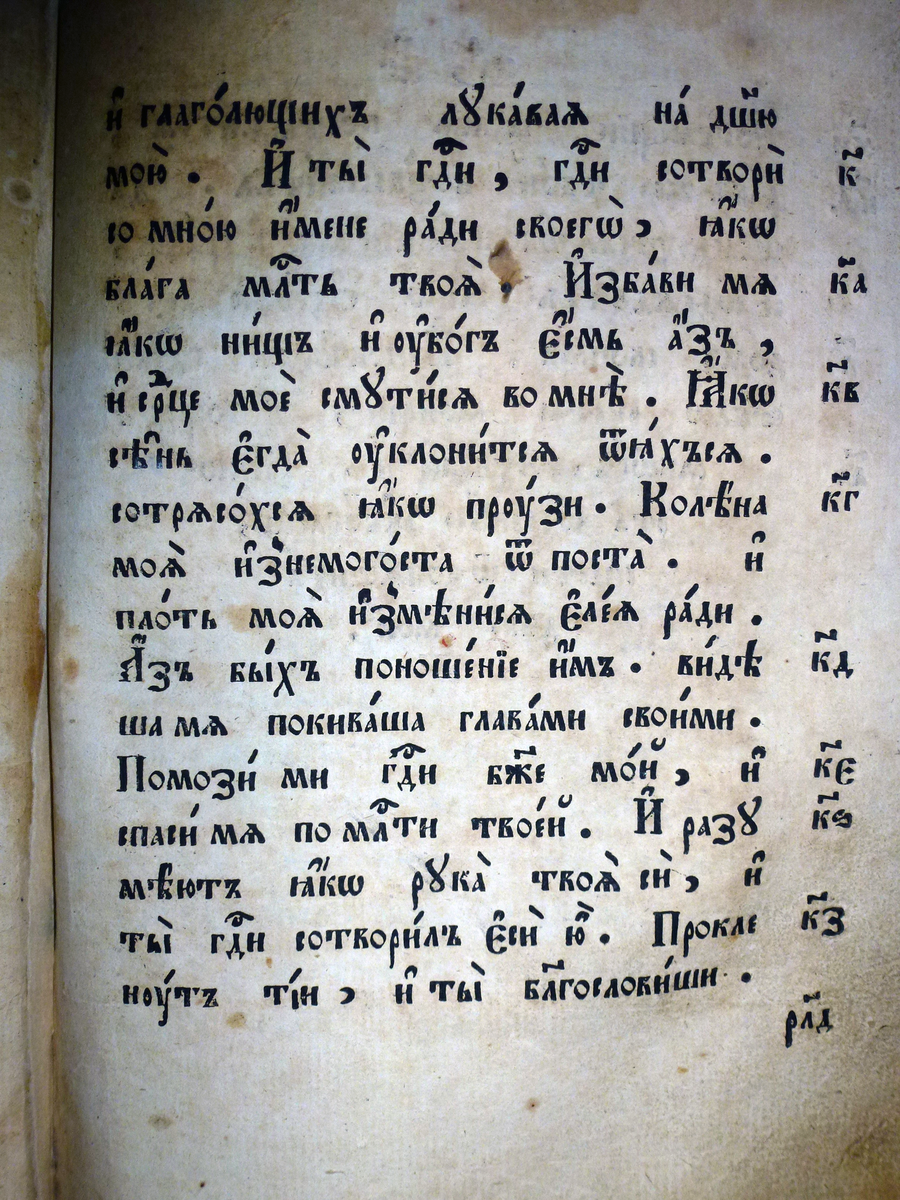 и҆ глаго́лющихъ лꙋка́ваꙗ на́ дш҃ю
мою̀ . И҆ ты̀ гдⷭ҇и , гдⷭ҇и сотворѝ к҃
со мно́ю и҆́мене ра́ди своегѡ̀ , ꙗ҆́кѡ
бла́га млⷭ҇ть твоѧ̀ . И҆зба́ви мѧ к҃а
ꙗ҆́кѡ ни́щъ и҆ оу҆бо́гъ є҆́смь а҆́зъ ,
и҆ срⷣце моѐ смꙋти́сѧ во мнѣ̀ . Ꙗ҆́кѡ к҃в
сѣ҆нь є҆гда̀ оу҆клони́тсѧ ѿнꙗ́хъсѧ .
сотрѧсо́хсѧ ꙗ҆́кѡ проу́зи . Колѣ҆на к҃г
моѧ̀ и҆з̾немого́ста ѿ поста̀ . и҆
пло́ть моѧ̀ и҆з̾мѣни́сѧ є҆ле́ꙗ ра́ди .
А҆́зъ бы́хъ поноше́нїе и҆̀мъ . ви́дѣ к҃д
ша мѧ покива́ша глава́ми свои́ми .
Помози́ ми гдⷭ҇и бж҃е мо́й , и҆ к҃є
спаси́ мѧ по млⷭ҇ти твое́й . И҆ разꙋ к҃ѕ
мѣ́ютъ ꙗ҆́кѡ рꙋка̀ твоѧ̀ сѝ , и҆
ты̀ гдⷭ҇и сотвори́лъ є҆сѝ ю҆̀ . Прокле к҃з
ноу́тъ ті́и , и҆ ты̀ бл҃гослови́ши .
рл҃д